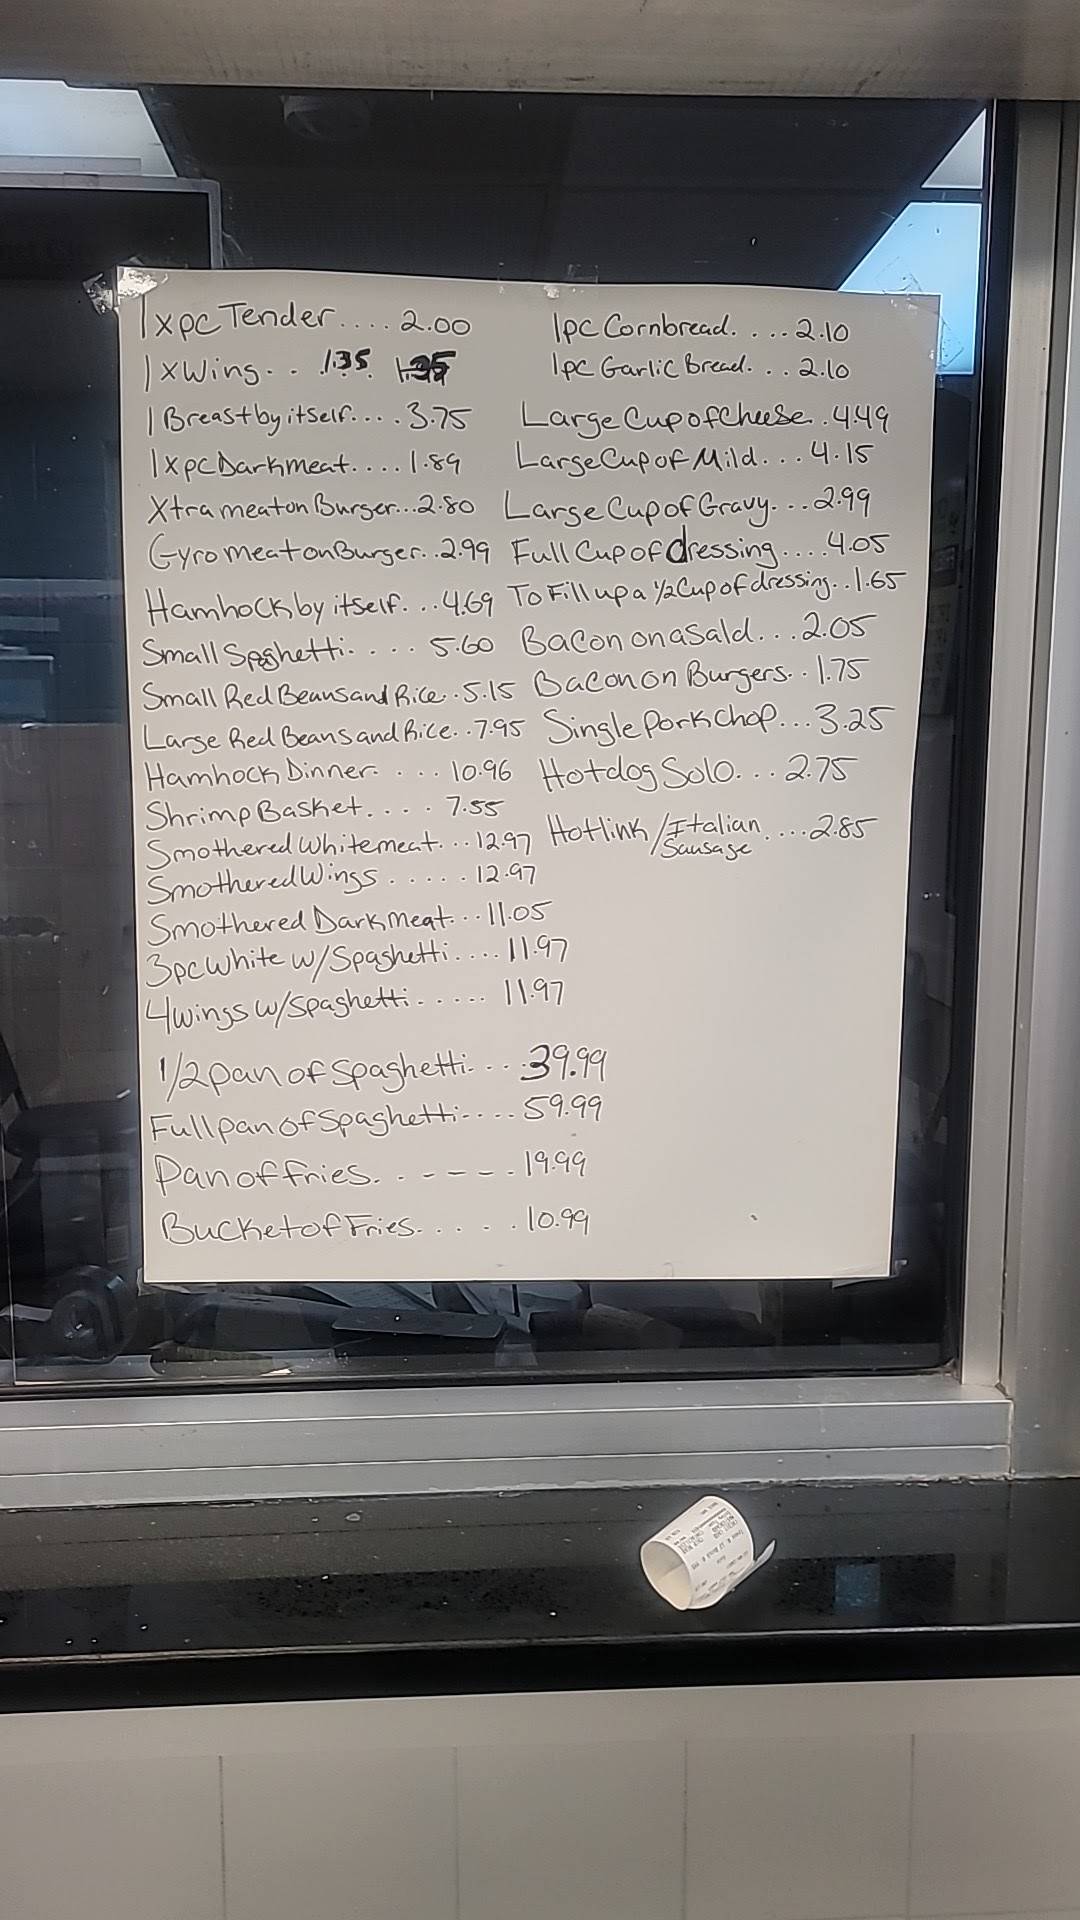 1xpc Tender.... 2.00
1xWing... 1.35 1.35
1 Breast by itself.... 3.75
1xpc Dark meat.... 1.89
Xtra meat on Burger...2.80
Gyro meat on Burger..2.99
Hamhock by itself...4.69
Small Spaghetti..... 5.60
Small Red Beans and Rice..5.15
Large Red Beans and Rice..7.95
Hamhock Dinner.....10.96
Shrimp Basket.... 7.55
Smothered White meat...12.97
Smothered Wings.....12.97
Smothered Dark meat...11.05
3pc White w/Spaghetti....11.97
4wings w/spaghetti..... 11.97
1/2 pan of spaghetti....39.99
Full pan of Spaghetti....59.99
Pan of fries..----.19.99
Bucket of Fries.....10.99
1pc Cornbread....2.10
1pc Garlic Bread...2.10
Large Cup of Cheese..4.49
Large Cup of Mild...4.15
Large Cup of Gravy...2.99
Full Cup of dressing....4.05
To Fill up a 1/2 Cup of dressing..1.65
Bacon on a Sald...2.05
Bacon on Burgers..1.75
Single Pork Chop...3.25
Hotdog Solo...2.75
Hotlink/Italian....2.85
Sausage